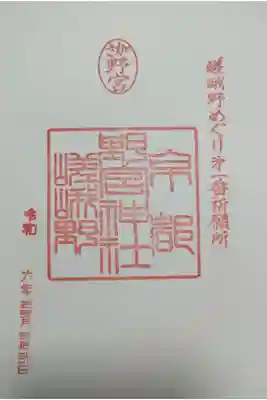 嵯峨野めぐり第一番祈願所
野宮
京都
野宮神社
嵯峨野
令和
六年